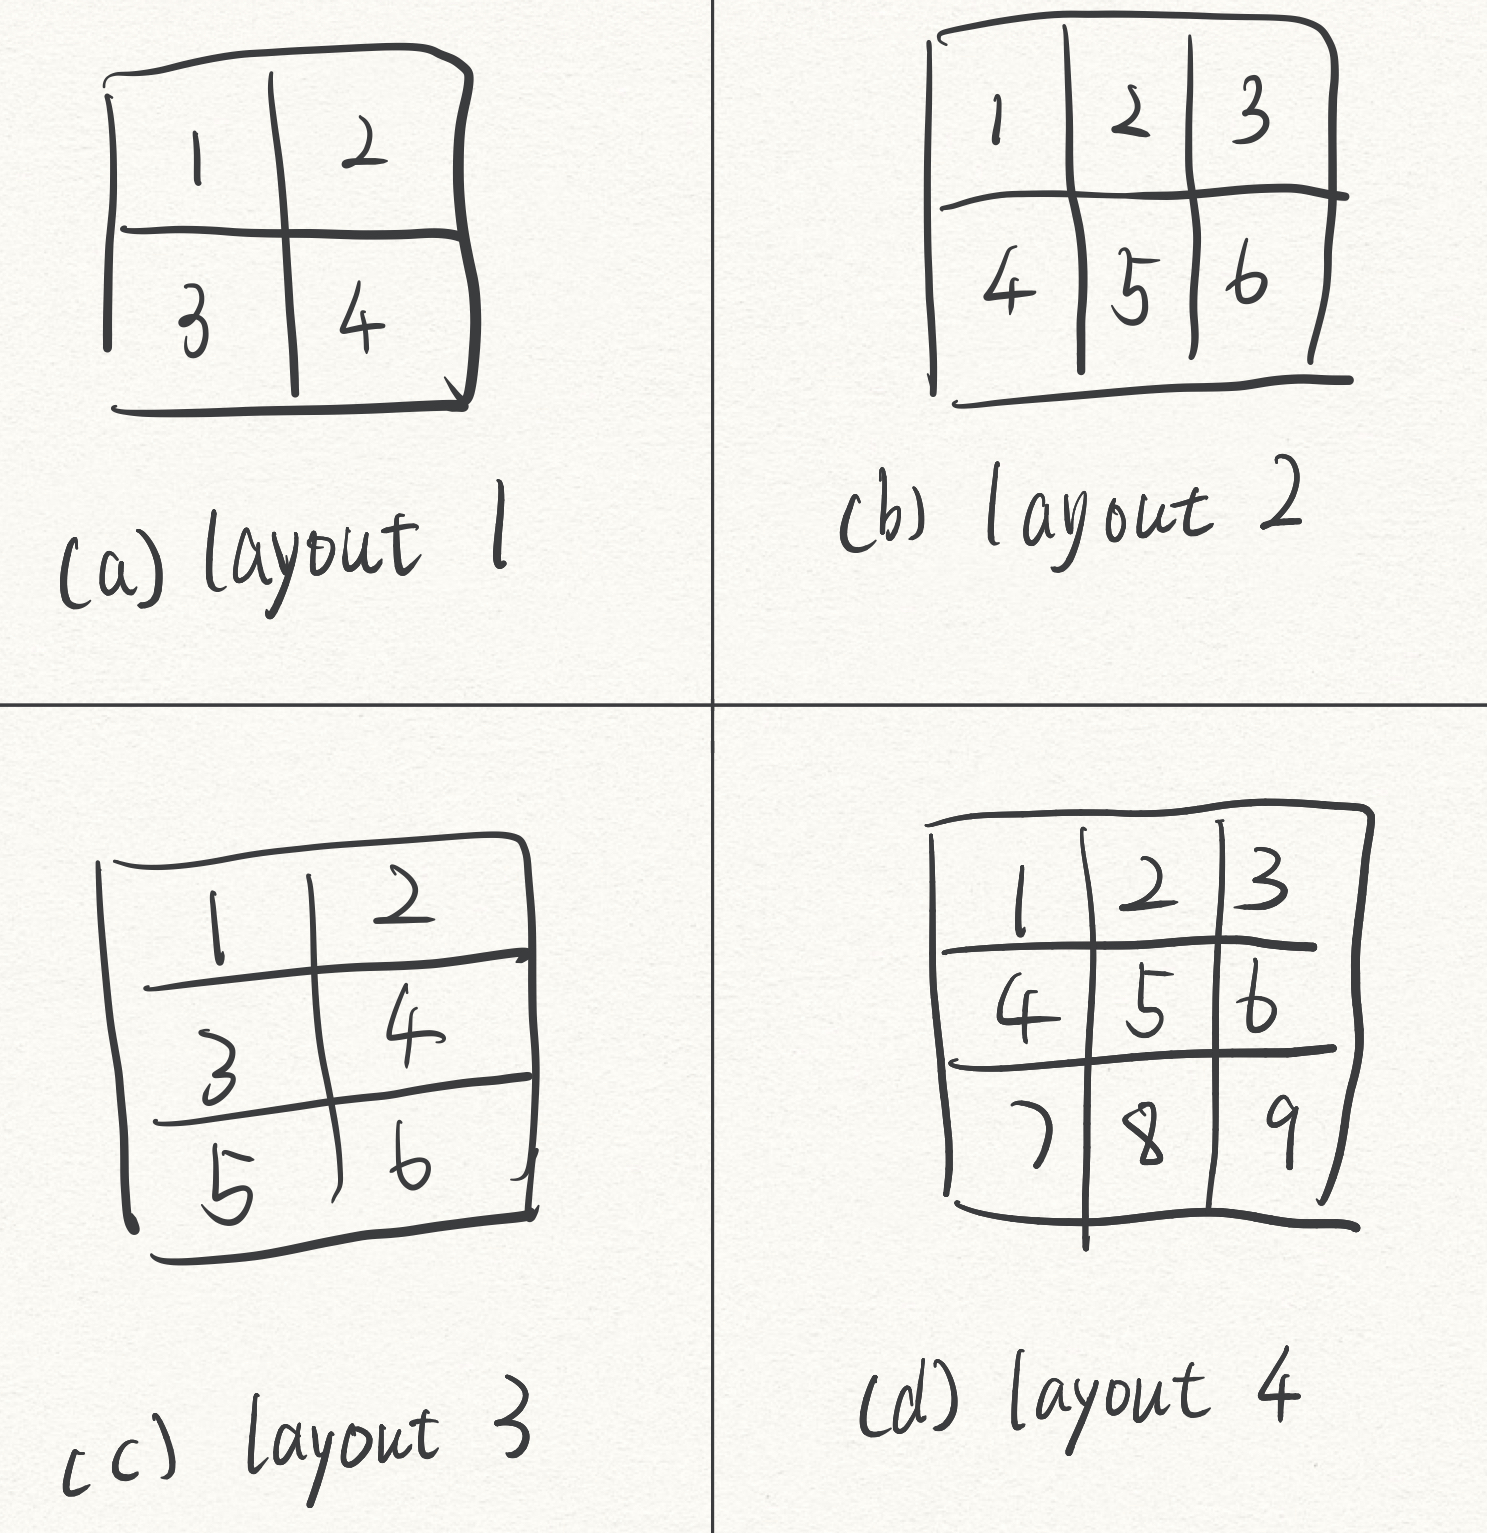 1 2
3 4
(a) layout 1
1 2 3
4 5 6
(b) layout 2
1 2
3 4
5 6
(c) layout 3
1 2 3
4 5 6
7 8 9
(d) layout 4